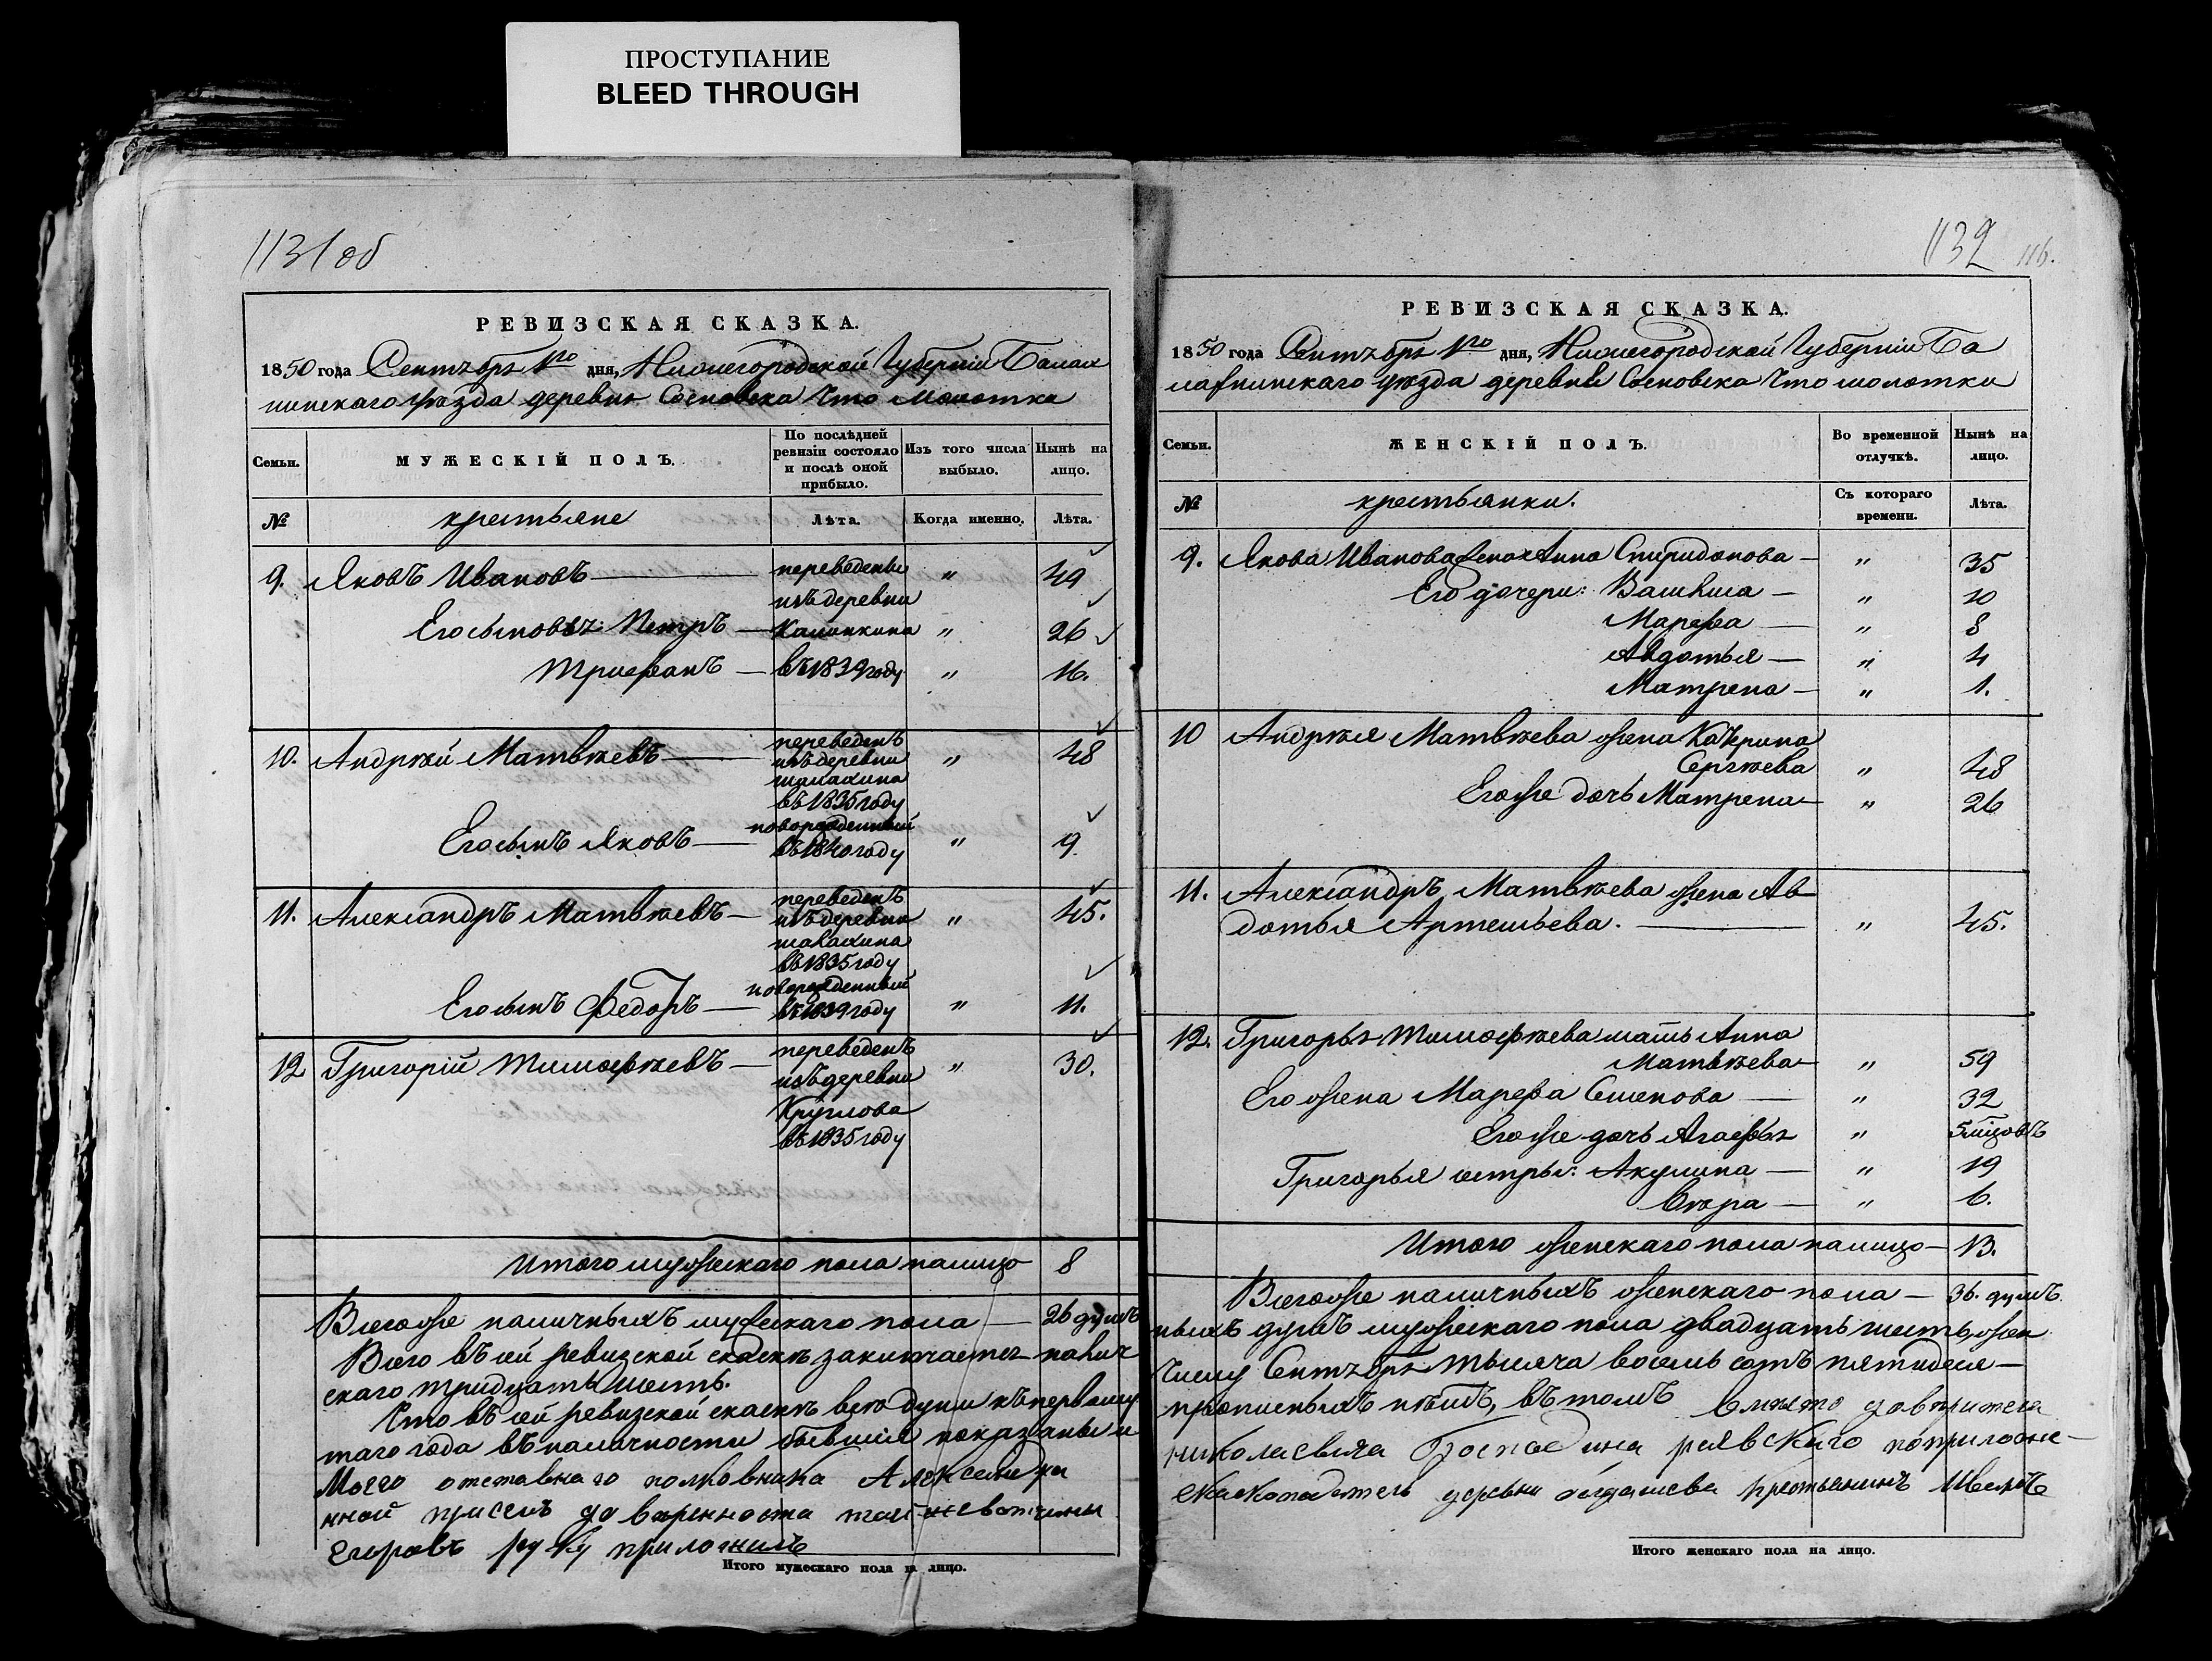 ПРОСТУПАНИЕ
BLEED THROUGH
1131 об
РЕВИЗСКАЯ СКАЗКА.
1850 года Сентября 1го дня, Нижегородской Губернiи Балах
нинскаго уѣзда деревни Сосновска Что Молотки
Семьи.
МУЖЕСКIЙ ПОЛЪ.
По послѣдней ревизiи состояло и послѣ оной прибыло.
Изъ того числа выбыло.
Нынѣ на лицо.
№
крестьяне
Лѣта.
Когда именно.
Лѣта.
9. Яковъ Ивановъ — переведены " 49
изъ деревни
Его сыновья: Петръ — Калинкина " 26
Трифанъ — въ 1839 году " 16.
10. Андрѣй Матвѣевъ — переведенъ " 48
изъ деревни
въ 1835 году
Его сынъ Яковъ — новорожденный " 9
въ 1840 году
11. Александръ Матвѣевъ — переведенъ " 45.
изъ деревни
въ 1835 году
Его сынъ Федоръ — новорожденный " 11.
въ 1839 году
12 Григорiй Тимофѣевъ — переведенъ " 30.
изъ деревни
Круглова
въ 1835 году
Итого мужескаго пола налицо 8
Всего же наличныхъ мужескаго пола — 26 душъ
Всего въ сей ревизской сказкѣ заключается налич
скаго тридцать шесть.
Что въ сей ревизской сказкѣ всѣ души къ первому
таго года въ наличности бывшiя показаны и
Моего отставнаго полковника Александра
нной присемъ доверенности той же вотчины
Егоровъ руку приложилъ
Итого мужескаго пола на лицо.
1132 116.
РЕВИЗСКАЯ СКАЗКА.
1850 года Сентября 1го дня, Нижегородской Губернiи Ба
лахнинскаго уѣзда деревни Сосновска Что молотки
Семьи.
ЖЕНСКIЙ ПОЛЪ.
Во временной отлучкѣ.
Нынѣ на лицо.
№
крестьянки.
Съ котораго времени.
Лѣта.
9. Якова Иванова жена Анна Спиридонова — " 35
Его дочери: Васкиса — " 10
Марфа — " 8
Авдотья — " 4
Матрена — " 1.
10 Андрѣя Матвѣева жена Катерина
Сергѣева " 48
Его же дочь Матрена — " 26
11. Александръ Матвѣева жена Ав
дотья Артемьева. — " 45.
12. Григорья Тимофѣева мать Анна
Матвѣева — " 59
Его жена Марфа Семенова — " 32
Его же дочь Агафья " 5 мцовъ
Григорья сестры: Акулина — " 19
Вѣра — " 6.
Итого женскаго пола налицо — 13.
Всего же наличныхъ женскаго пола — 36. душъ
ныхъ душъ мужескаго пола двадцать шесть, жен
числу Сентября тысяча восемь сотъ пятидеся —
прописныхъ нѣтъ, въ томъ вместо доверителя
николаевича Господина ряевскаго поприложе —
сказкоподатель деревни крестьянинъ Иванъ
Итого женскаго пола на лицо.